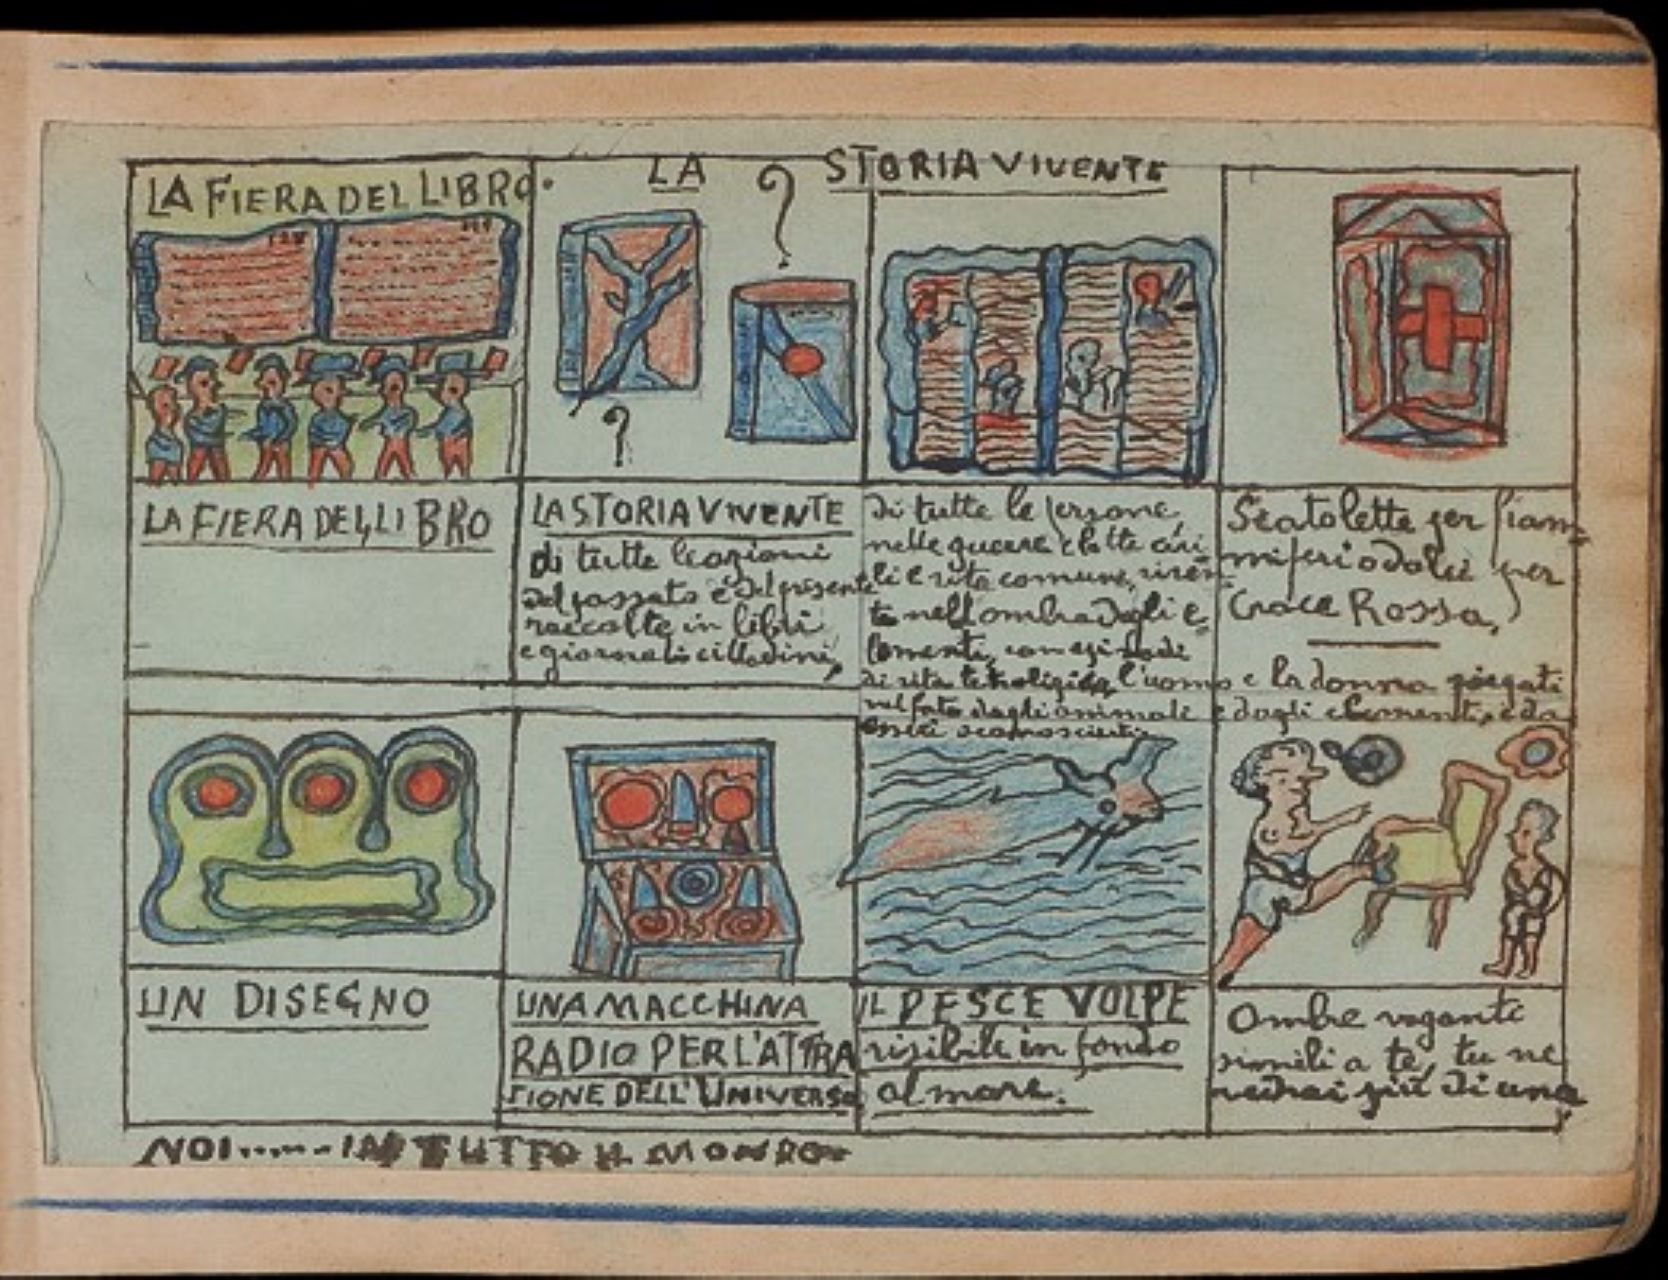 LA FIERA DEL LIBRO.
LA ? STORIA VIVENTE
?
LA FIERA DEL LIBRO
LA STORIA VIVENTE
di tutte le azioni
del passato e del presente
raccolte in libri
e giornali cittadini,
di tutte le persone,
nelle guerre e lotte civi
li e vita comune, viven
te nell'ombra degli e
lementi, con
di vita l'uomo e la donna piegati
nel fato dagli animali e dagli elementi, e da
esseri sconosciuti.
Scatolette per fiam-
miferi o dolci per
Croce Rossa,
UN DISEGNO
UNA MACCHINA
RADIO PER L'ATTRA
ZIONE DELL'UNIVERSO
IL PESCE VOLPE
visibile in fondo
al mare.
Ombre vaganti
simili a te, tu ne
vedrai più di una
NOI......IN TUTTO IL MONDO